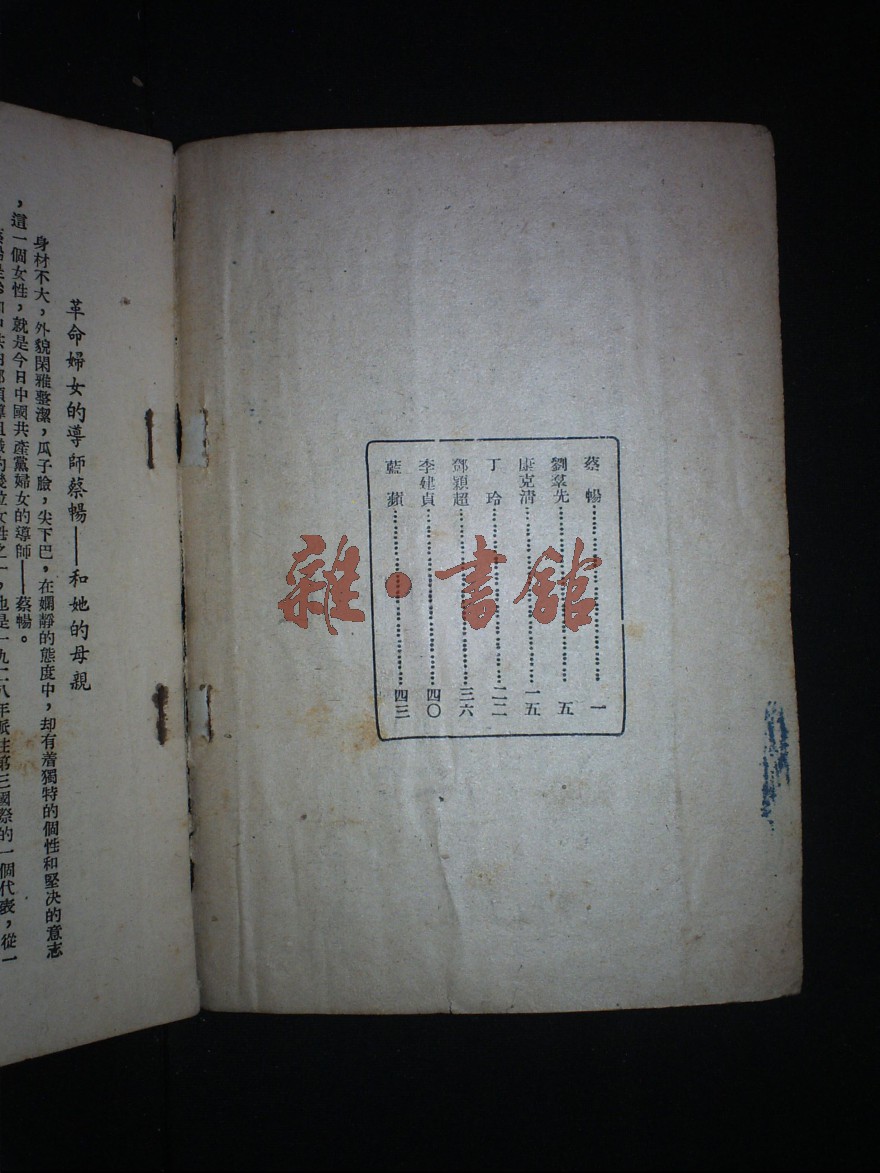 蔡暢……………一
劉羣先……………五
康克清……………一五
丁玲……………二二
鄧穎超……………三六
李建貞……………四〇
藍蘋……………四三
雜·書舘
革命婦女的導師蔡暢——和她的母親
身材不大，外貌閑雅整潔，瓜子臉，尖下巴，在嫻靜的態度中，却有着獨特的個性和堅决的意志
，這一個女性，就是今日中國共產黨婦女的導師——蔡暢。
女性之一，也是一九二八年派往第三國際的一個代表，從一